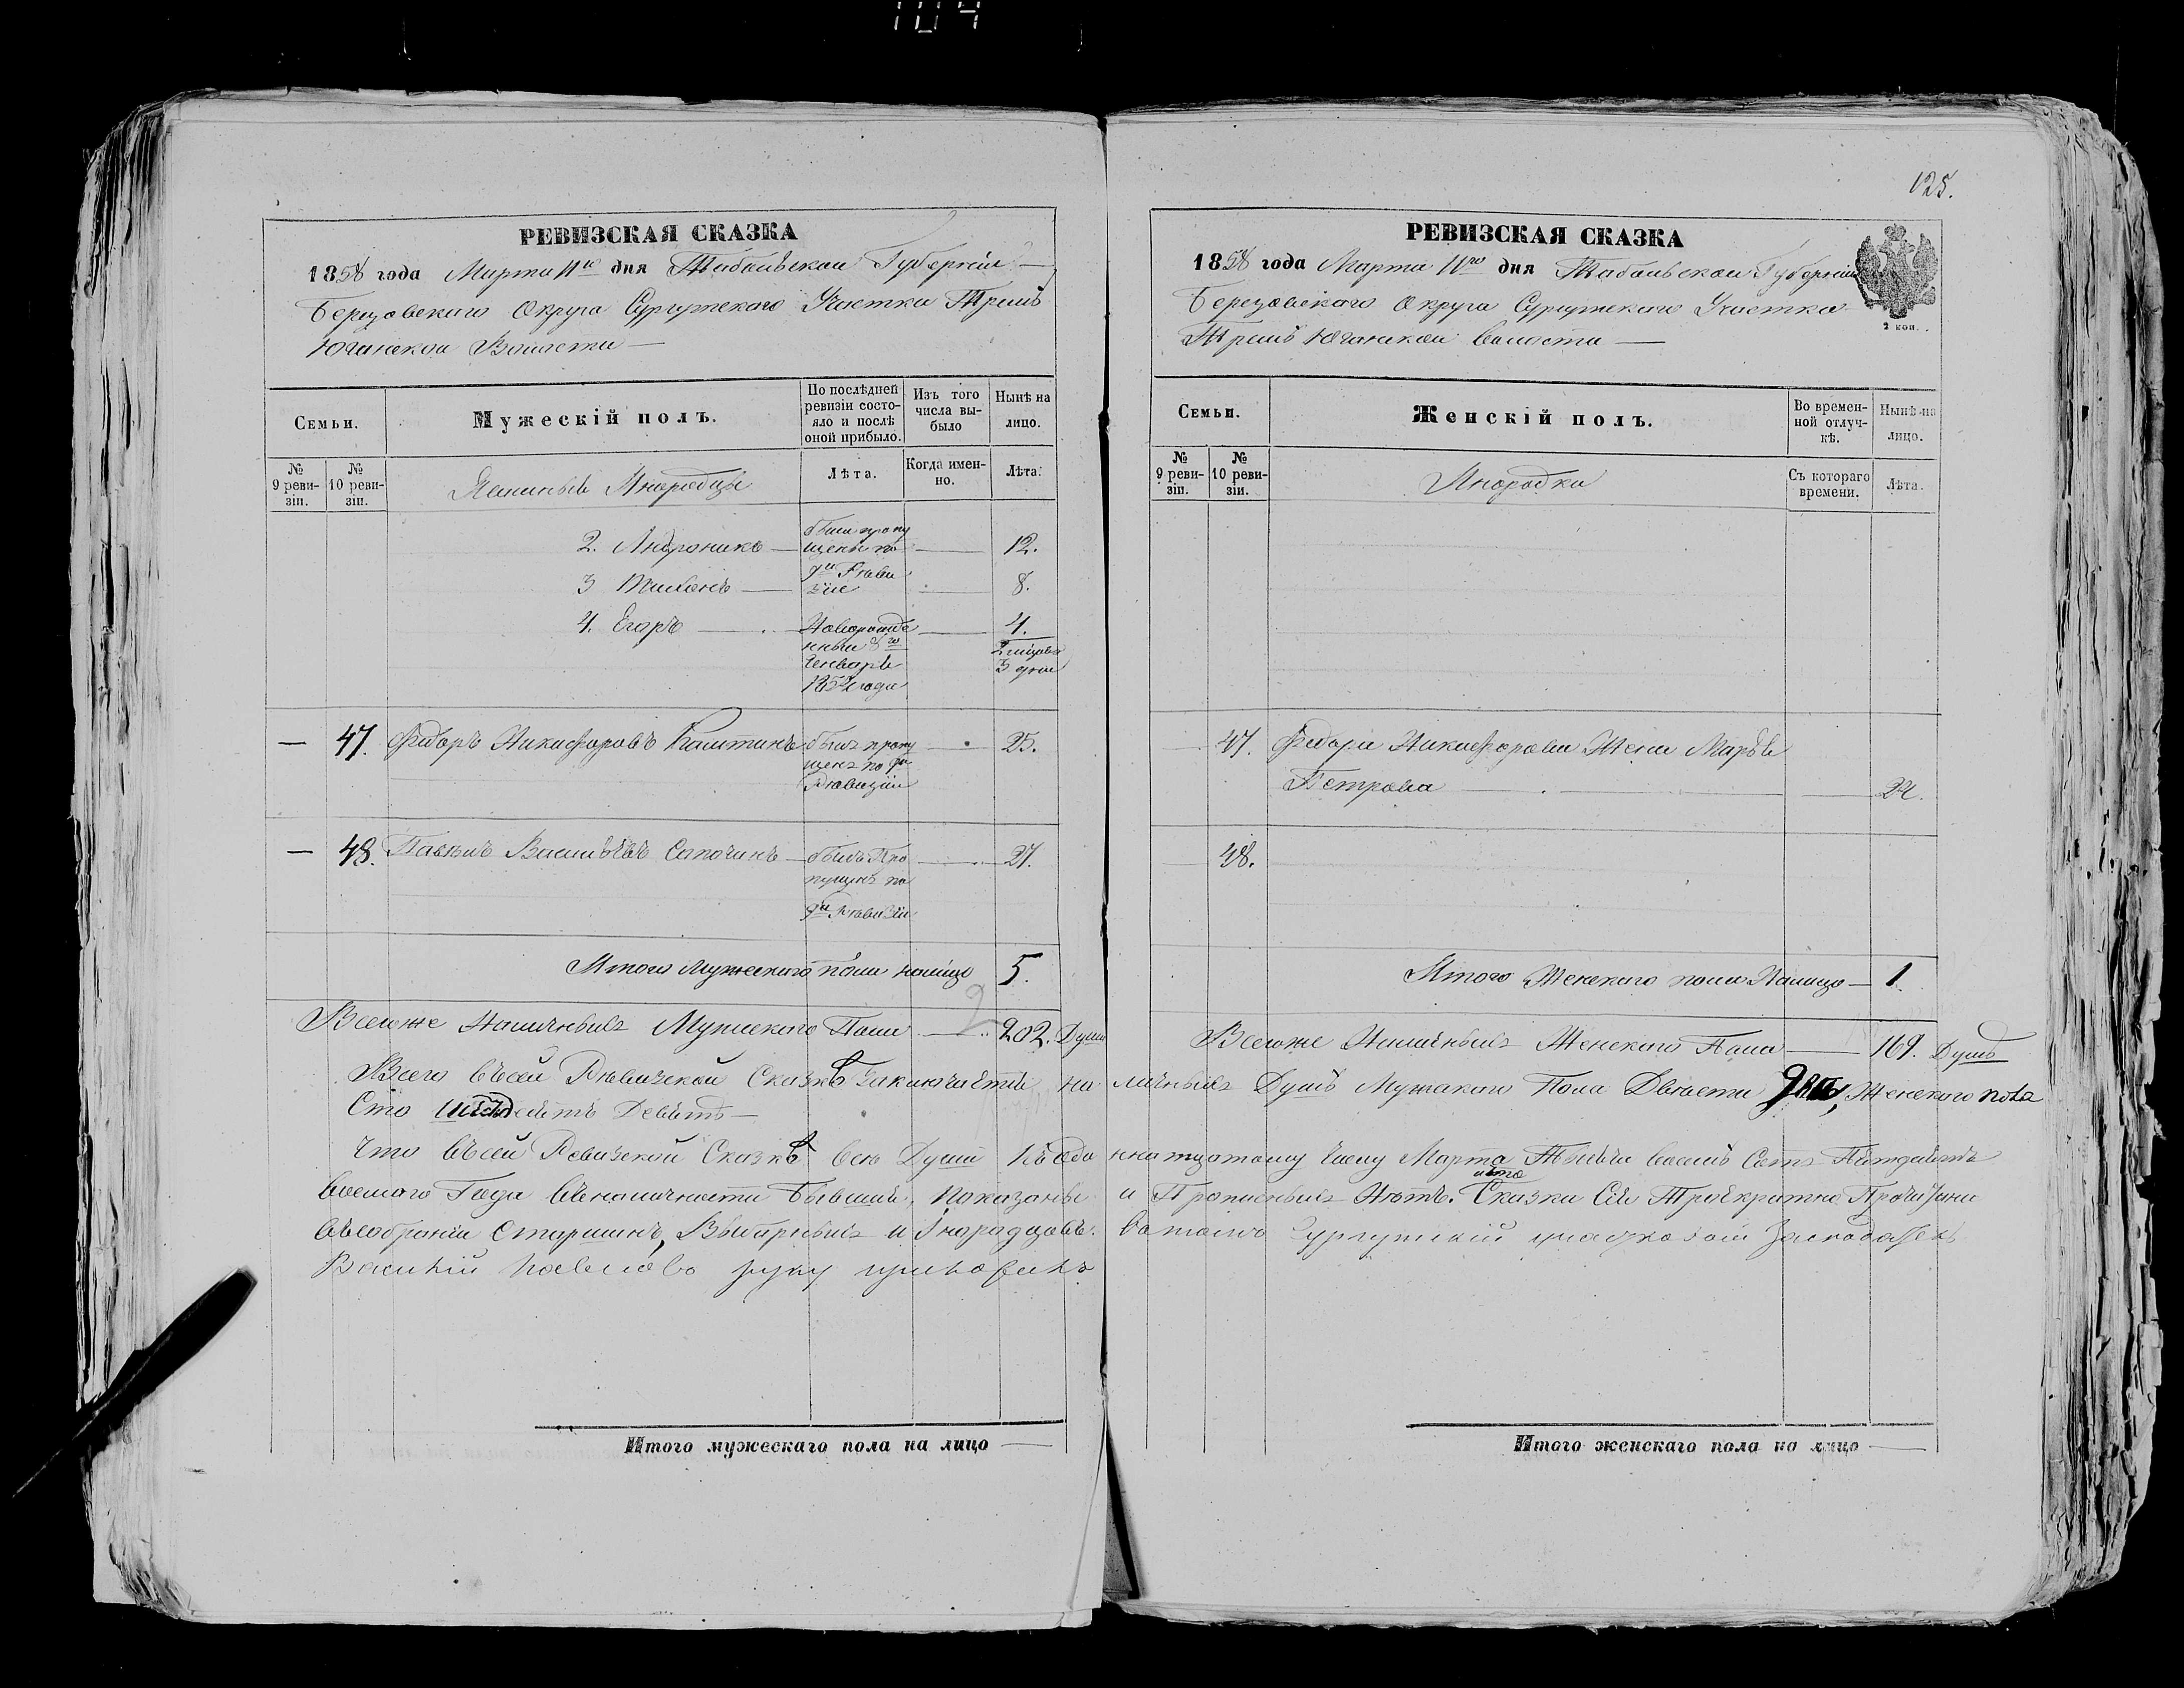 104
РЕВИЗСКАЯ СКАЗКА
1858 года Марта 11го дня Тобольской Губерніи
Березовскаго Округа Сургутскаго Участка Тремъ
Юганской Волости
Семьи.
Мужескій полъ.
По послѣдней ревизіи состояло и послѣ оной прибыло.
Изъ того числа выбыло
Нынѣ на лицо.
№ 9 ревизіи.
№ 10 ревизіи.
Ясашные Инородцы
Лѣта.
Когда именно.
Лѣта.
2. Андроникъ — были пропу — 12.
щены по
3 — 9й Ревизіи — 8.
4. Егоръ — Новорожденный 8го — 4.
Генваря — 2 мѣсяца
1854 года — 3 дни
— 47. Федоръ Никифоровъ — былъ пропу — 25.
щенъ по 9й
Ревизіи
— 48. Павелъ Васильевъ — былъ про — 27.
пущенъ по
9й Ревизіи
Итого Мужескаго пола налицо 5.
Всегоже Наличныхъ Мужескаго Пола — 202. Душ
125.
РЕВИЗСКАЯ СКАЗКА
1858 года Марта 11го дня Тобольской Губерніи
Березовскаго Округа Сургутскаго Участка
Тремъ Юганской волости
2 коп.
Семьи.
Женскій полъ.
Во временной отлучкѣ.
Нынѣ на лицо.
№ 9 ревизіи.
№ 10 ревизіи.
Инородки
Съ котораго времени.
Лѣта.
47. Федора Никифорова Жена Марья
Петрова — 22.
48.
Итого Женскаго пола Налицо — 1.
Всегоже Наличныхъ Женскаго Пола — 169. Душъ
Всего въсей Ревизской Сказкѣ заключается наличныхъ Душъ Мужскаго Пола Двѣсти двѣ, Женскаго пола
Сто шестьдесятъ Девять —
Что въсей Ревизской Сказкѣ всѣ Души Къодиннатцатому числу Марта Тысяча восемь Сотъ Пятдесятъ
восмаго Года въналичности бывшіе, показаны и Прописныхъ Нѣтъ. что Сказка Сія Троекратно Прочитана
въсобраніи Старшинъ, Выборныхъ и Инородцовъ. Вотомъ Сургутскій участковой Заседатель
руку приложилъ
Итого мужескаго пола на лицо —
Итого женскаго пола на лицо —